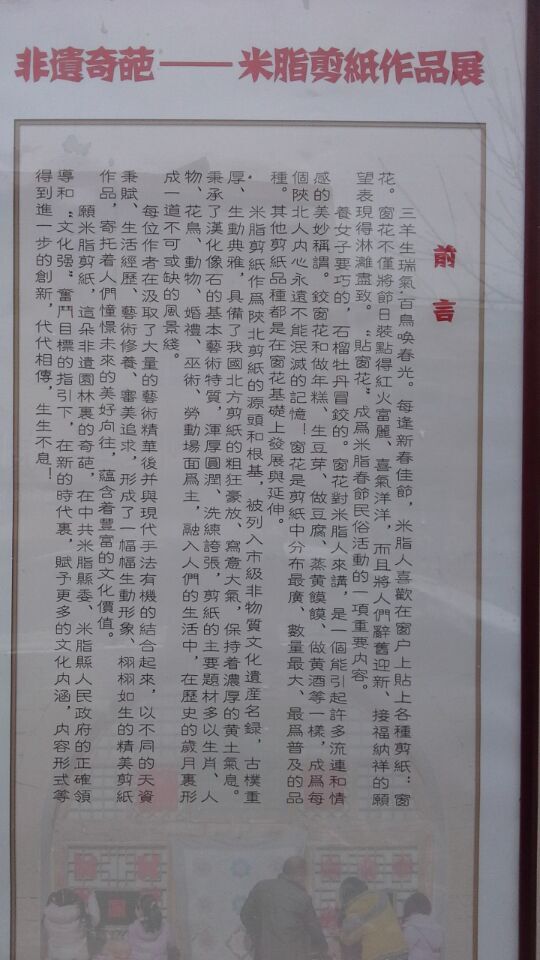 非遺奇葩——米脂剪紙作品展
前言
三羊生瑞氣,百鳥喚春光。每逢新春佳節，米脂人喜歡在窗户上貼上各種剪紙：窗
花。窗花不僅將節日裝點得紅火富麗、喜氣洋洋，而且將人們辭舊迎新、接福納祥的願
望表現得淋灕盡致。“貼窗花”成爲米脂春節民俗活動的一項重要内容。
養女子要巧的，石榴牡丹冒鉸的。窗花對米脂人來講，是一個能引起許多流連和情
感的美妙稱謂。鉸窗花和做年糕、生豆芽、做豆腐、蒸黄饃饃、做黄酒等一樣，成爲每
個陝北人内心永遠不能泯滅的記憶！窗花是剪紙中分布最廣、數量最大、最爲普及的品
種。其他剪紙品種都是在窗花基礎上發展與延伸。
米脂剪紙作爲陝北剪紙的源頭和根基，被列入市級非物質文化遺産名録，古樸重
厚、生動典雅，具備了我國北方剪紙的粗狂豪放、寫意大氣，保持着濃厚的黄土氣息。
秉承了漢化像石的基本藝術特質，渾厚圓潤、洗練誇張，剪紙的主要題材多以生肖、人
物、花鳥、動物、婚禮、巫術、勞動場面爲主，融入人們的生活中，在歷史的歲月裏形
成一道不可或缺的風景綫。
每位作者在汲取了大量的藝術精華後并與現代手法有機的結合起來，以不同的天資
秉賦、生活經歷、藝術修養、審美追求，形成了一幅幅生動形象、栩栩如生的精美剪紙
作品，寄托着人們憧憬未來的美好向往，蕴含着豐富的文化價值。
願米脂剪紙，這朵非遺園林裏的奇葩，在中共米脂縣委、米脂縣人民政府的正確領
導和“文化强”奮鬥目標的指引下，在新的時代裏，賦予更多的文化内涵，内容形式等
得到進一步的創新，代代相傳，生生不息！